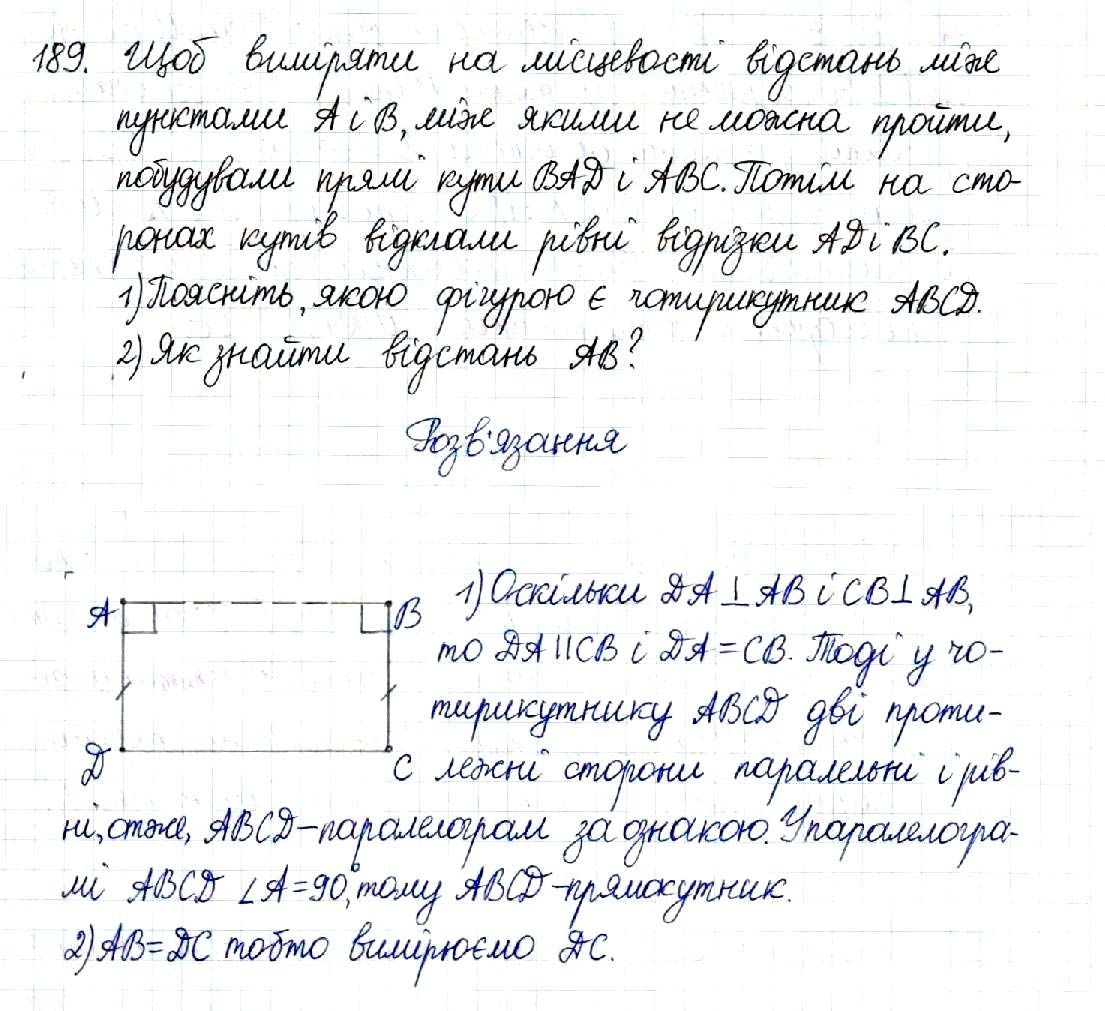 189. Щоб виміряти на місцевості відстань між
пунктами А і В, між якими не можна пройти,
побудували прямі кути ВАD і АВС. Потім на сто-
ронах кутів відклали рівні відрізки АD і ВС.
1) Поясніть, якою фігурою є чотирикутник АВСD.
2) Як знайти відстань АВ?
Розв'язання
A B
1) Оскільки DA⊥AB і CB⊥AB,
то DA||CB і DA=CB. Тоді у чо-
тирикутнику ABCD дві проти-
D C
лежні сторони паралельні і рів-
ні, отже, ABCD-паралелограм за ознакою. У паралелогра-
мі ABCD ∠A=90°, тому ABCD-прямокутник.
2) AB=DC тобто вимірюємо DC.